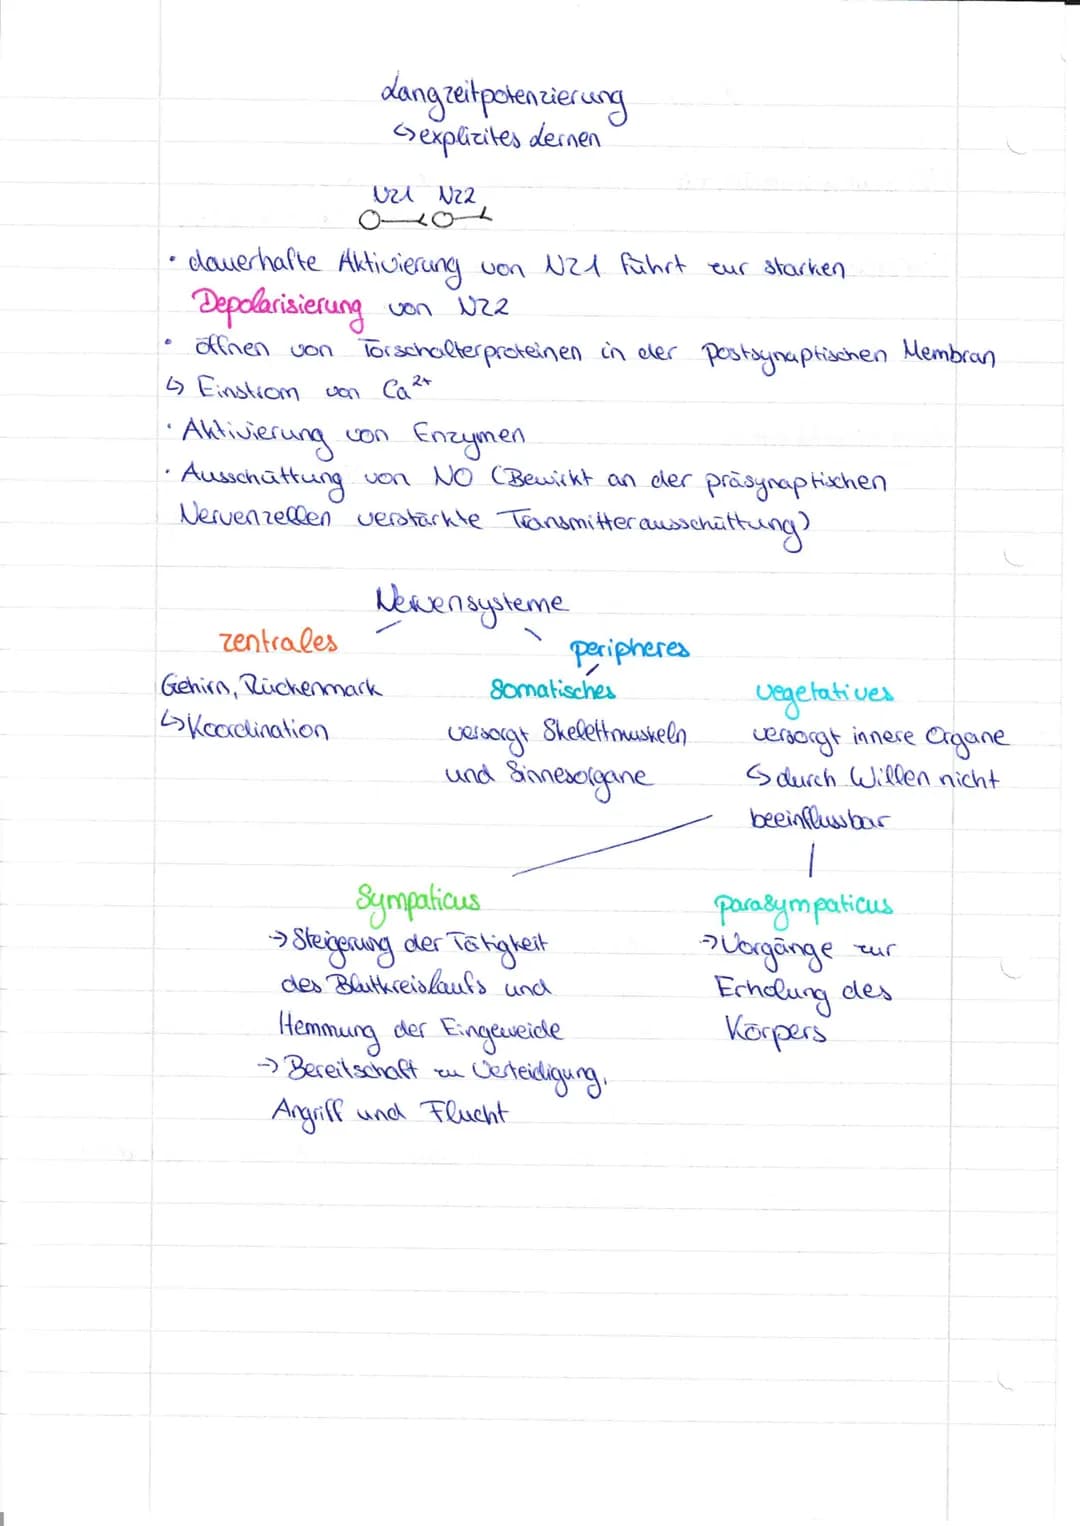 Langzeitpotenzierung
↳ explizites Lernen
NZ1 NZ2
• dauerhafte Aktivierung von NZ1 führt zur starken
Depolarisierung von NZ2
• öffnen von Torschalterproteinen in der postsynaptischen Membran
↳ Einstrom von Ca²⁺
• Aktivierung von Enzymen
• Ausschüttung von NO (Bewirkt an der präsynaptischen
Nervenzellen verstärkte Transmitterausschüttung)
Nervensysteme
zentrales
peripheres
Gehirn, Rückenmark
↳ Koordination
somatisches
versorgt Skelettmuskeln
und Sinnesorgane
vegetatives
versorgt innere Organe
↳ durch Willen nicht
beeinflussbar
Sympaticus
→ Steigerung der Tätigkeit
des Blutkreislaufs und
Hemmung der Eingeweide
→ Bereitschaft zu Verteidigung,
Angriff und Flucht
parasympaticus
→ Vorgänge zur
Erholung des
Körpers